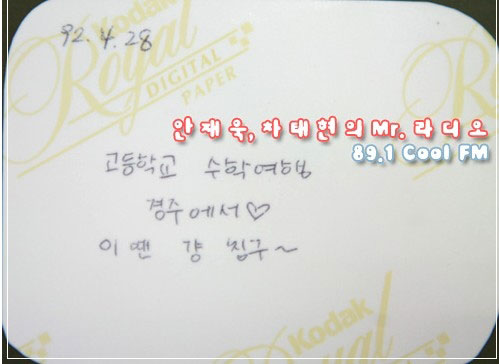 Kodak
Royal
DIGITAL
PAPER
92.4.28
안재욱,차태현의 Mr. 라디오
89.1 Cool FM
고등학교 수학여행
경주에서♡
이땐 걍 칭구~
Kodak
Royal
DIGITAL
Kodak